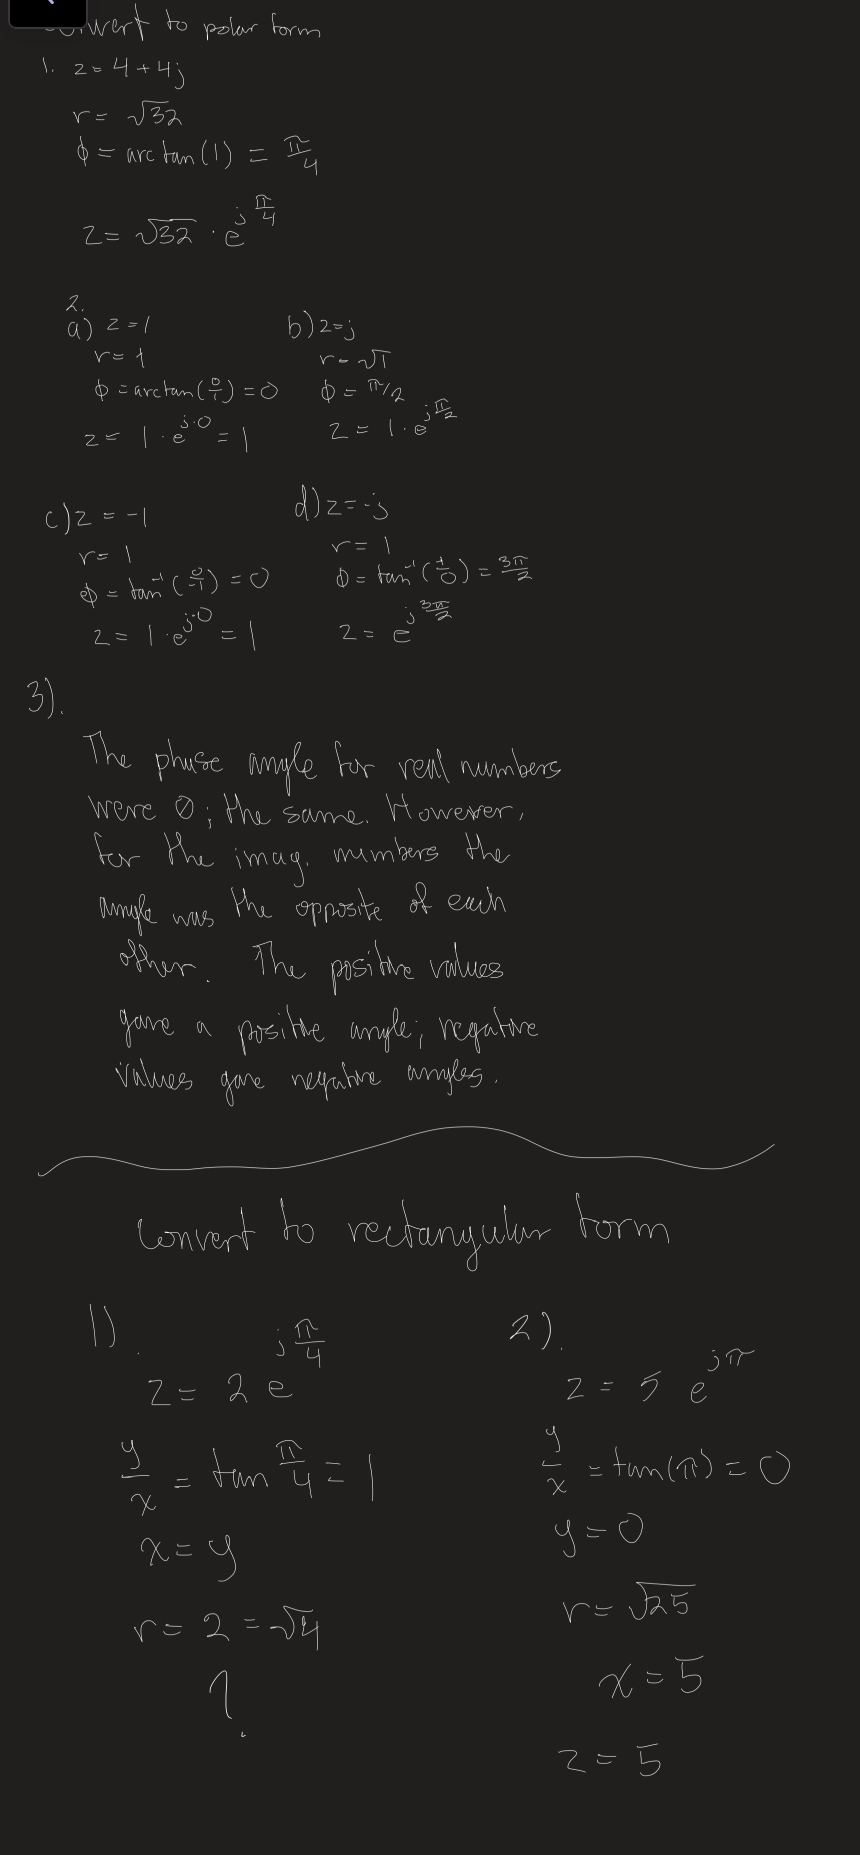 convert to polar form
1. z = 4 + 4j
r = √32
ϕ = arctan(1) = π/4
z = √32 · e^(j π/4)
2.
a) z = 1
r = 1
ϕ = arctan(0/1) = 0
z = 1 · e^(j·0) = 1
b) z = j
r = √1
ϕ = π/2
z = 1 · e^(j π/2)
c) z = -1
r = 1
ϕ = tan⁻¹(0/-1) = 0
z = 1 · e^(j·0) = 1
d) z = -j
r = 1
ϕ = tan⁻¹(1/0) = 3π/2
z = e^(j 3π/2)
3).
The phase angle for real numbers
were 0; the same. However,
for the imag. numbers the
angle was the opposite of each
other. The positive values
gave a positive angle; negative
values gave negative angles.
Convert to rectangular form
1).
z = 2 e^(j π/4)
y/x = tan π/4 = 1
x = y
r = 2 = √4
?
2).
z = 5 e^(jπ)
y/x = tan(π) = 0
y = 0
r = √25
x = 5
z = 5